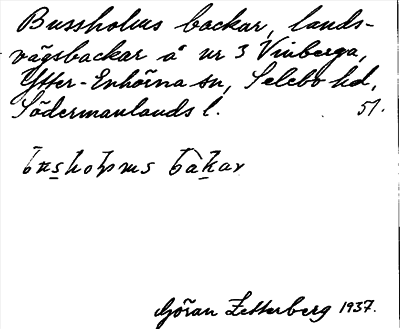 Bussholms backar, lands-
vägsbackar å nr 3 Vinberga,
Ytter-Enhörna sn, Selebo hd,
Södermanlands l. 51.
bakar
Göran Zetterberg 1937.